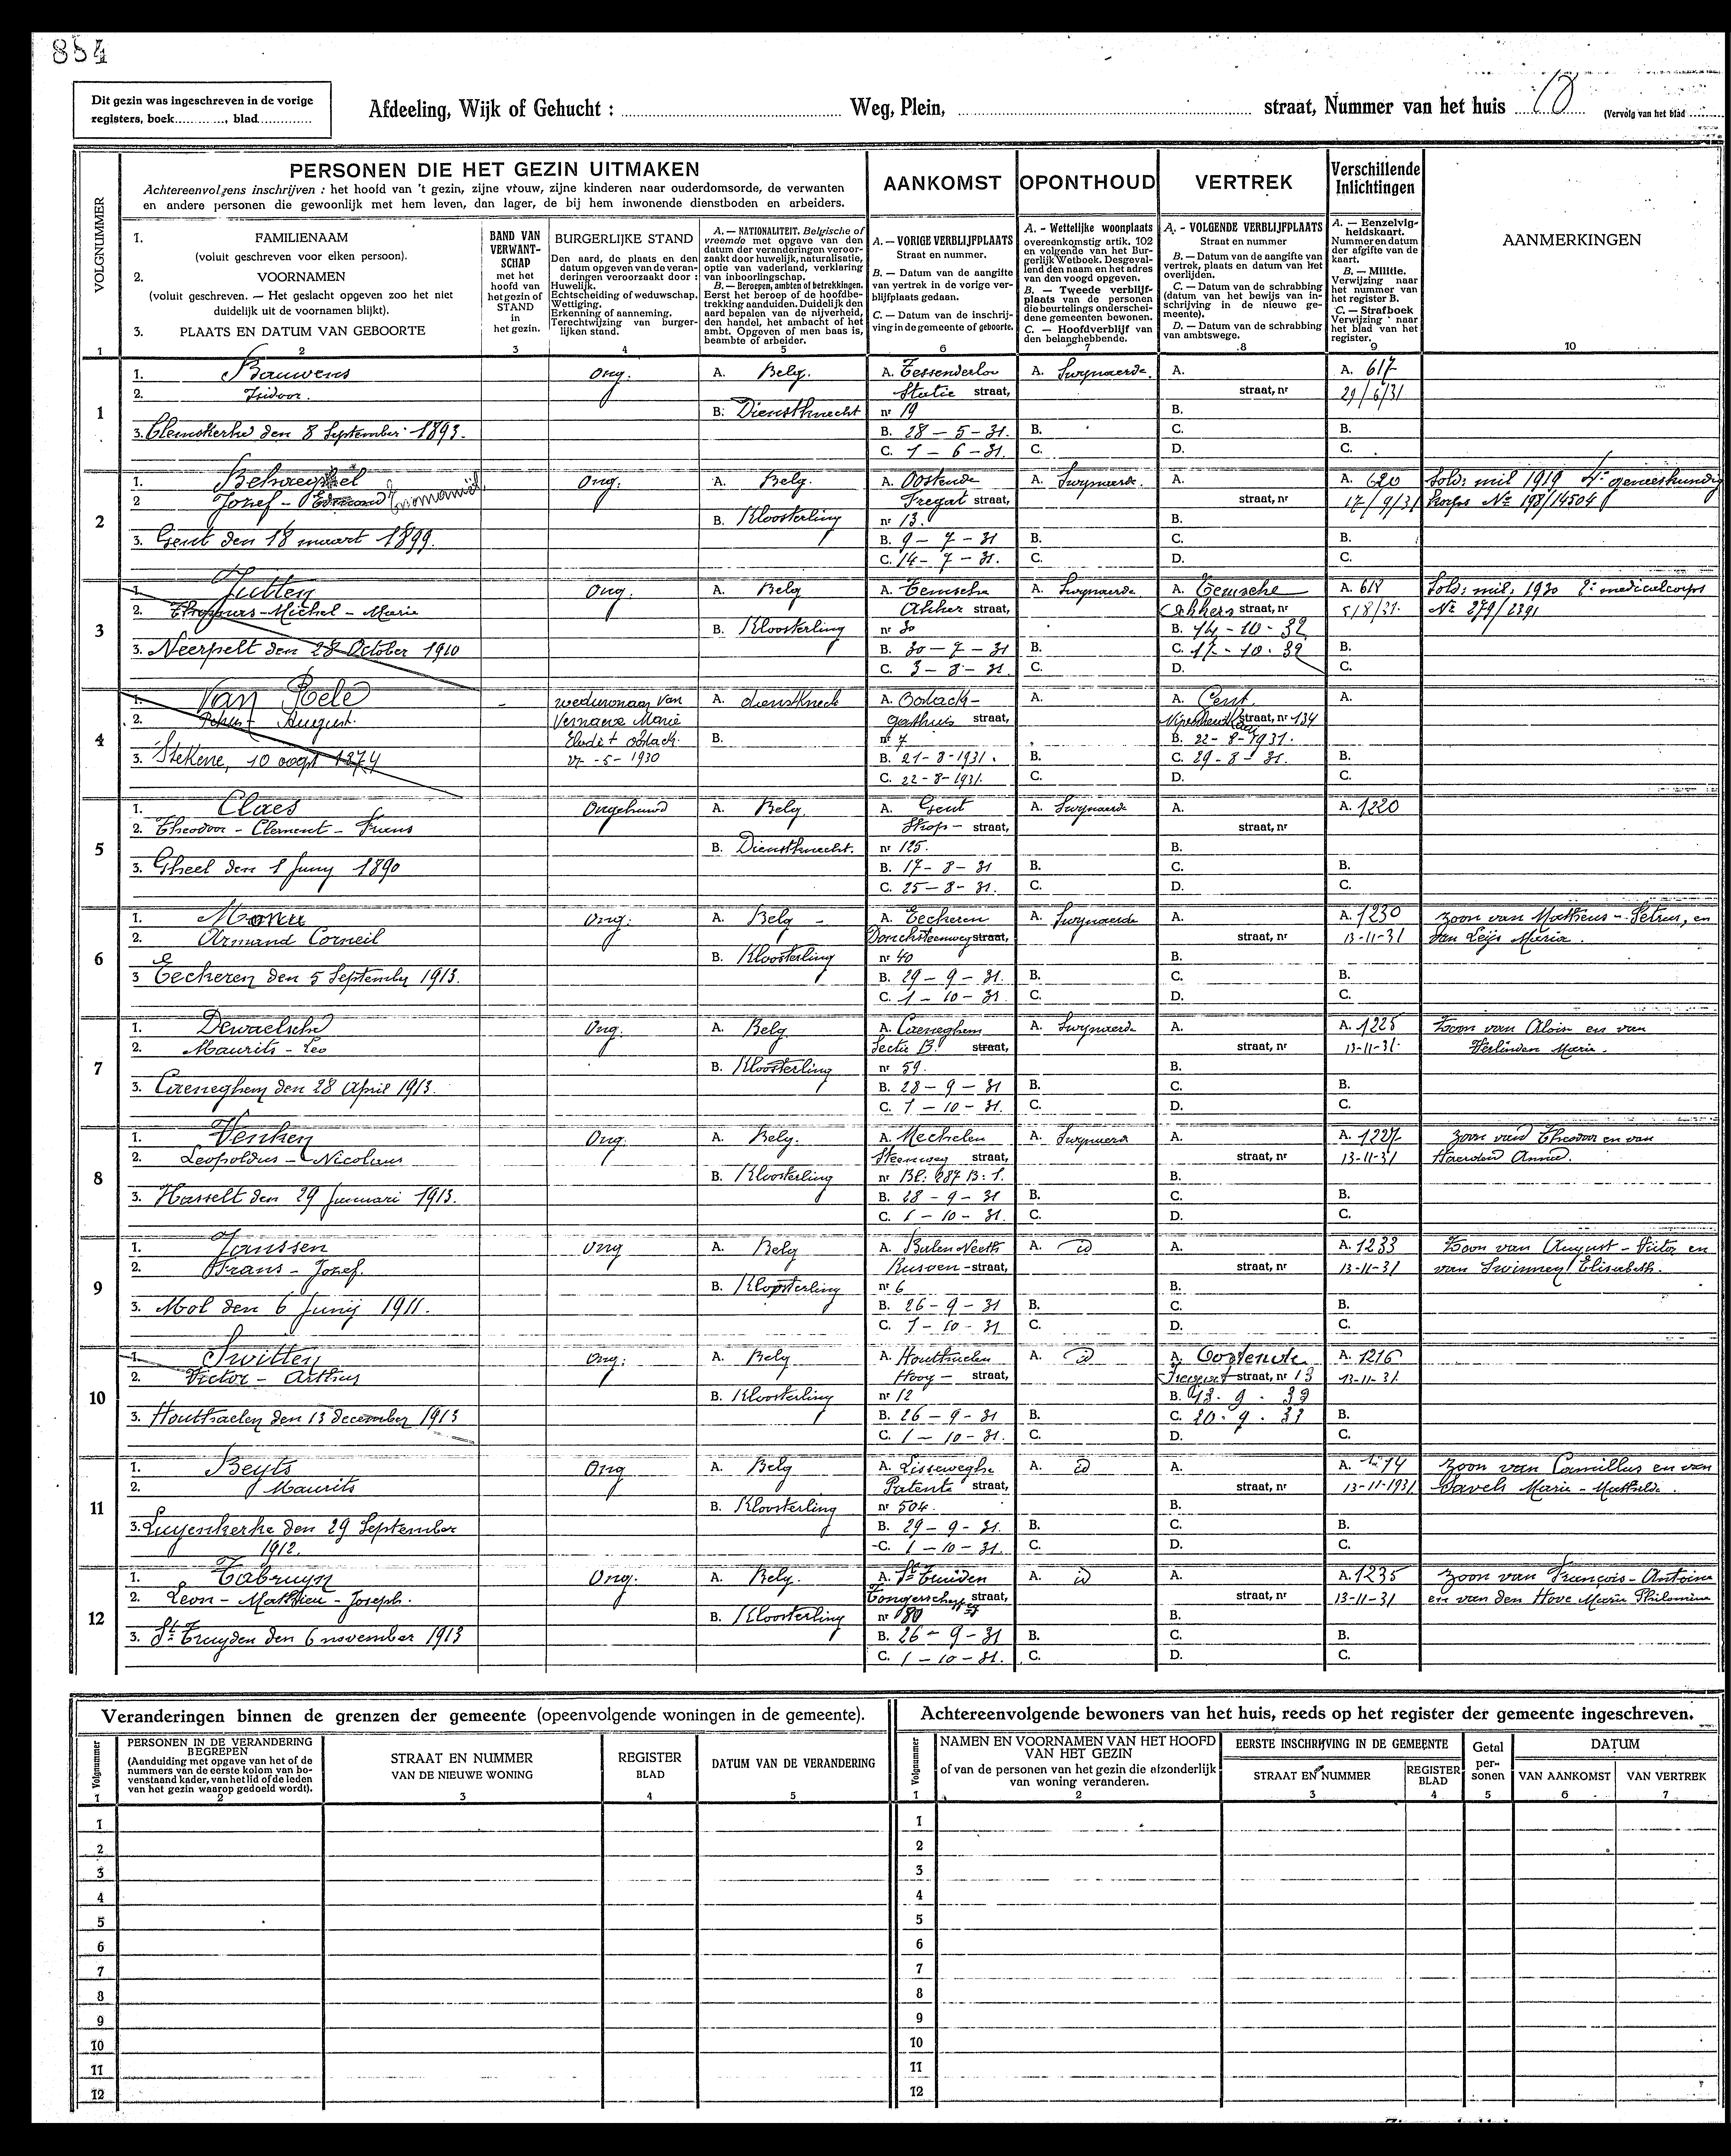 854
Dit gezin was ingeschreven in de vorige
registers, boek............, blad..............
Afdeeling, Wijk of Gehucht : .......... Weg, Plein, .......... straat, Nummer van het huis 10 (Vervolg van het blad
PERSONEN DIE HET GEZIN UITMAKEN
Achtereenvolgens inschrijven : het hoofd van 't gezin, zijne vrouw, zijne kinderen naar ouderdomsorde, de verwanten
en andere personen die gewoonlijk met hem leven, dan lager, de bij hem inwonende dienstboden en arbeiders.
AANKOMST
OPONTHOUD
VERTREK
Verschillende
Inlichtingen
AANMERKINGEN
VOLGNUMMER
1. FAMILIENAAM
(voluit geschreven voor elken persoon).
2. VOORNAMEN
(voluit geschreven. — Het geslacht opgeven zoo het niet
duidelijk uit de voornamen blijkt).
3. PLAATS EN DATUM VAN GEBOORTE
BAND VAN
VERWANT-
SCHAP
met het
hoofd van
het gezin of
STAND
in
het gezin.
BURGERLIJKE STAND
Den aard, de plaats en den
datum opgeven van de veran-
deringen veroorzaakt door :
Huwelijk.
Echtscheiding of weduwschap.
Wettiging.
Erkenning of aanneming.
Terechtwijzing van burger-
lijken stand.
A. — NATIONALITEIT. Belgische of
vreemde met opgave van den
datum der veranderingen veroor-
zaakt door huwelijk, naturalisatie,
optie van vaderland, verklaring
van inboorlingschap.
B. — Beroepen, ambten of betrekkingen.
Eerst het beroep of de hoofdbe-
trekking aanduiden. Duidelijk den
aard bepalen van de nijverheid,
den handel, het ambacht of het
ambt. Opgeven of men baas is,
beambte of arbeider.
A. — VORIGE VERBLIJFPLAATS
Straat en nummer.
B. — Datum van de aangifte
van vertrek in de vorige ver-
blijfplaats gedaan.
C. — Datum van de inschrij-
ving in de gemeente of geboorte.
A. - Wettelijke woonplaats
overeenkomstig artik. 102
en volgende van het Bur-
gerlijk Wetboek. Desgeval-
lend den naam en het adres
van den voogd opgeven.
B. — Tweede verblijf-
plaats van de personen
die beurtelings onderschei-
dene gemeenten bewonen.
C. — Hoofdverblijf van
den belanghebbende.
A. - VOLGENDE VERBLIJFPLAATS
Straat en nummer
B. — Datum van de aangifte van
vertrek, plaats en datum van het
overlijden.
C. — Datum van de schrabbing
(datum van het bewijs van in-
schrijving in de nieuwe ge-
meente).
D. — Datum van de schrabbing
van ambtswege.
A. — Eenzelvig-
heldskaart.
Nummer en datum
der afgifte van de
kaart.
B. — Militie.
Verwijzing naar
het nummer van
het register B.
C. — Strafboek
Verwijzing naar
het blad van het
register.
1 2 3 4 5 6 7 8 9 10
1. Bauwens Ong. A. Belg. A. Tessenderloo A. Swynaerde. A. A. 617
2. Isidoor. Statie straat, straat, nr 29/6/31
1 B. Dienstknecht nr 19 B.
3. Clemskerke den 8 September 1893. B. 28 - 5 - 31. B. C. B.
C. 1 - 6 - 31. C. D. C.
1. Ong. A. Belg. A. Oostende A. Swynaerde. A. A. 620 Sold: mil 1919 geneeskundig
2 Jozef - Fregat straat, straat, nr 17/9/31 korps No 198/14504
2 B. Kloosterling nr 13. B.
3. Gent den 18 maart 1899. B. 9 - 7 - 31 B. C. B.
C. 14 - 7 - 31. C. D. C.
1. Jutten Ong. A. Belg A. Temsche A. Swynaerde A. Temsche A. 618 Sold: mil. 1930 2e medicalcorps
2. - Michel - Marie Akker straat, Akkers straat, nr 5/8/31. No 279/2391
3 B. Kloosterling nr 30 B. 14 - 10 - 32
3. Neerpelt den 28 October 1910 B. 30 - 7 - 31 B. C. 17 - 10 - 32 B.
C. 3 - 8 - 31. C. D. C.
1. Van Poele weduwnaar van A. dienstknecht A. A. A. Gent A.
2. August. Marie gasthuis straat, straat, nr 134
4 B. nr 7 B. 22 - 8 - 1931.
3. Stekene, 10 oogst 1874 - 5 - 1930 B. 21 - 8 - 1931. B. C. 29 - 8 - 31. B.
C. 22 - 8 - 1931. C. D. C.
1. Claes Ongehuwd A. Belg. A. Gent A. Swynaerde A. A. 1220
2. Theodoor - Clement - Frans Strop - straat, straat, nr
5 B. Dienstknecht. nr 125. B.
3. Gheel den 1 Juny 1890 B. 17 - 8 - 31 B. C. B.
C. 25 - 8 - 31. C. D. C.
1. Ong. A. Belg - A. Eecheren A. Swynaerde A. A. 1230 zoon van Matheus - Petrus, en
2. Armand Corneil Doncksteenweg straat, straat, nr 13-11-31 Van Leijs Maria.
6 B. Kloosterling nr 40 B.
3 Eecheren den 5 September 1913. B. 29 - 9 - 31. B. C. B.
C. 1 - 10 - 31. C. D. C.
1. Dewaelsche Ong. A. Belg. A. Caeneghem A. Swynaerde A. A. 1225 Zoon van Aloïs en van
2. Maurits - Leo Sectie B. straat, straat, nr 13-11-31. Verlinden Marie.
7 B. Kloosterling nr 59. B.
3. Caeneghem den 28 April 1913. B. 28 - 9 - 31 B. C. B.
C. 1 - 10 - 31. C. D. C.
1. Venken Ong. A. Belg. A. Mechelen A. Swynaerde A. A. 1227 zoon van Theodoor en van
2. Leopoldus - Nicolaus Steenweg straat, straat, nr 13-11-31 Haerden Anna.
8 B. Kloosterling nr Bl: 287 B: 1. B.
3. Hasselt den 29 Januari 1913. B. 28 - 9 - 31 B. C. B.
C. 1 - 10 - 31. C. D. C.
1. Janssen Ong A. Belg A. Balen Neeth A. id A. A. 1233 Zoon van August - Victor en
2. Frans - Jozef. straat, straat, nr 13-11-31 van Swinnen Elisabeth.
9 B. Kloosterling nr 6 B.
3. Mol den 6 Junij 1911. B. 26 - 9 - 31 B. C. B.
C. 1 - 10 - 31 C. D. C.
1. Switten Ong. A. Belg A. Houthaelen A. id A. Oostende A. 1216
2. Victor - Arthur Hoog - straat, Fregat straat, nr 13 13-11-31.
10 B. Kloosterling nr 12 B. 13. 9. 33
3. Houthaelen den 13 december 1913 B. 26 - 9 - 31 B. C. 20. 9. 33 B.
C. 1 - 10 - 31. C. D. C.
1. Beyts Ong A. Belg A. Lisseweghe A. id A. A. zoon van Camillus en van
2. Maurits Patente straat, straat, nr 13-11-1931 Marie - Mathilde.
11 B. Kloosterling nr 504. B.
3. Zuyenkerke den 29 September B. 29 - 9 - 31. B. C. B.
1912. C. 1 - 10 - 31. C. D. C.
1. Tabruyn Ong. A. Belg. A. St Truiden A. id A. A. 1235 zoon van François - Antoine
2. Leon - Mathieu - Joseph. straat, straat, nr 13-11-31 en van den Hove Marie Philomène
12 B. Kloosterling nr 80 B.
3. St Truyden den 6 november 1913 B. 26 - 9 - 31 B. C. B.
C. 1 - 10 - 31. C. D. C.
Veranderingen binnen de grenzen der gemeente (opeenvolgende woningen in de gemeente).
Volgnummer
PERSONEN IN DE VERANDERING
BEGREPEN
(Aanduiding met opgave van het of de
nummers van de eerste kolom van bo-
venstaand kader, van het lid of de leden
van het gezin waarop gedoeld wordt).
STRAAT EN NUMMER
VAN DE NIEUWE WONING
REGISTER
BLAD
DATUM VAN DE VERANDERING
1 2 3 4 5
1
2
3
4
5
6
7
8
9
10
11
12
Achtereenvolgende bewoners van het huis, reeds op het register der gemeente ingeschreven.
Volgnummer
NAMEN EN VOORNAMEN VAN HET HOOFD
VAN HET GEZIN
of van de personen van het gezin die afzonderlijk
van woning veranderen.
EERSTE INSCHRIJVING IN DE GEMEENTE
STRAAT EN NUMMER
REGISTER
BLAD
Getal
per-
sonen
DATUM
VAN AANKOMST
VAN VERTREK
1 2 3 4 5 6 7
1
2
3
4
5
6
7
8
9
10
11
12